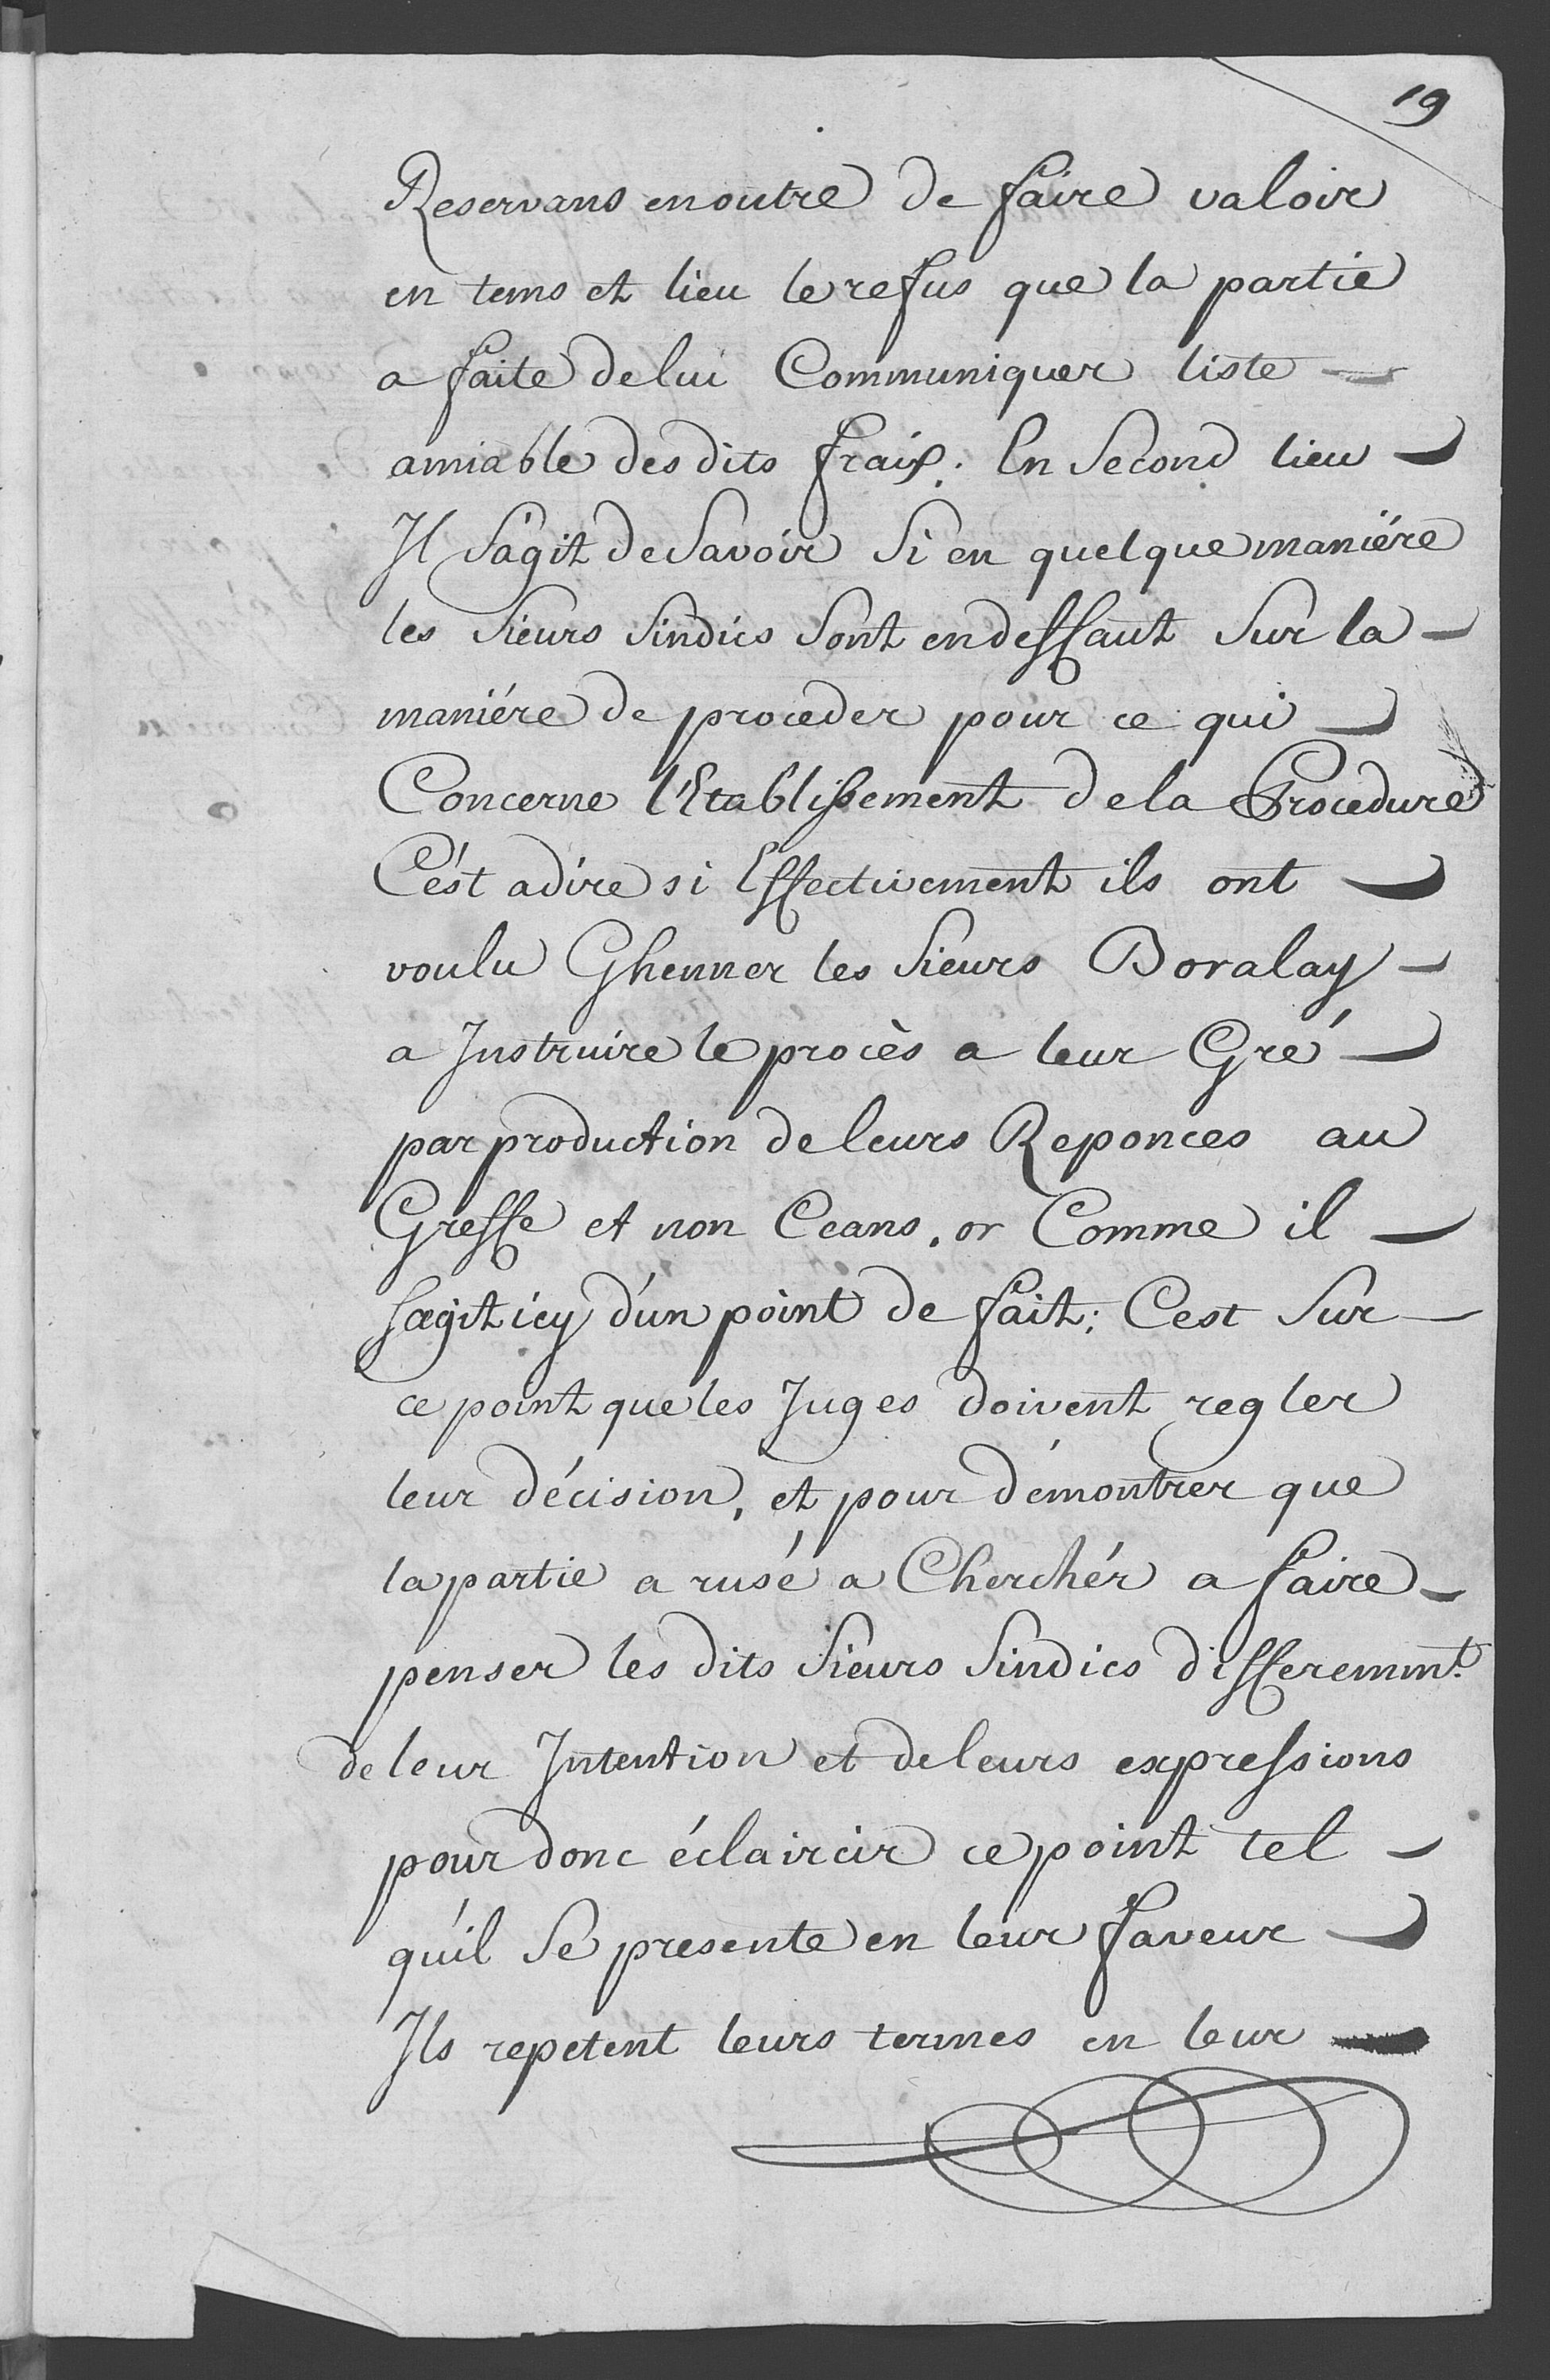 19
Reservans en outre de faire valoir
en tems et lieu le refus que la partie
a faite de lui Communiquer liste
amiable des dits fraix. En Second lieu
Il S'agit de Savoir Si en quelque maniére
les Sieurs Sindics Sont en deffaut Sur la
maniére de proceder pour ce qui
Concerne l'Etablissement de la Procedure
C'ést a dire si Effectivement ils ont
voulu Ghenner les Sieurs Boralay
a Instruire le procès a leur Gré
par production de leurs Reponces au
Greffe et non Ceans, or Comme il
sagit icy d'un point de fait; Cest Sur
ce point que les Juges doivent regler
leur décision, et pour démontrer que
la partie a rusé a Cherchér a faire
penser les dits Sieurs Sindics differemmt.
de leur Intention et de leurs expressions
pour donc éclaircir ce point tel
qu'il Se presente en leur faveur
Ils repetent leurs termes en leur